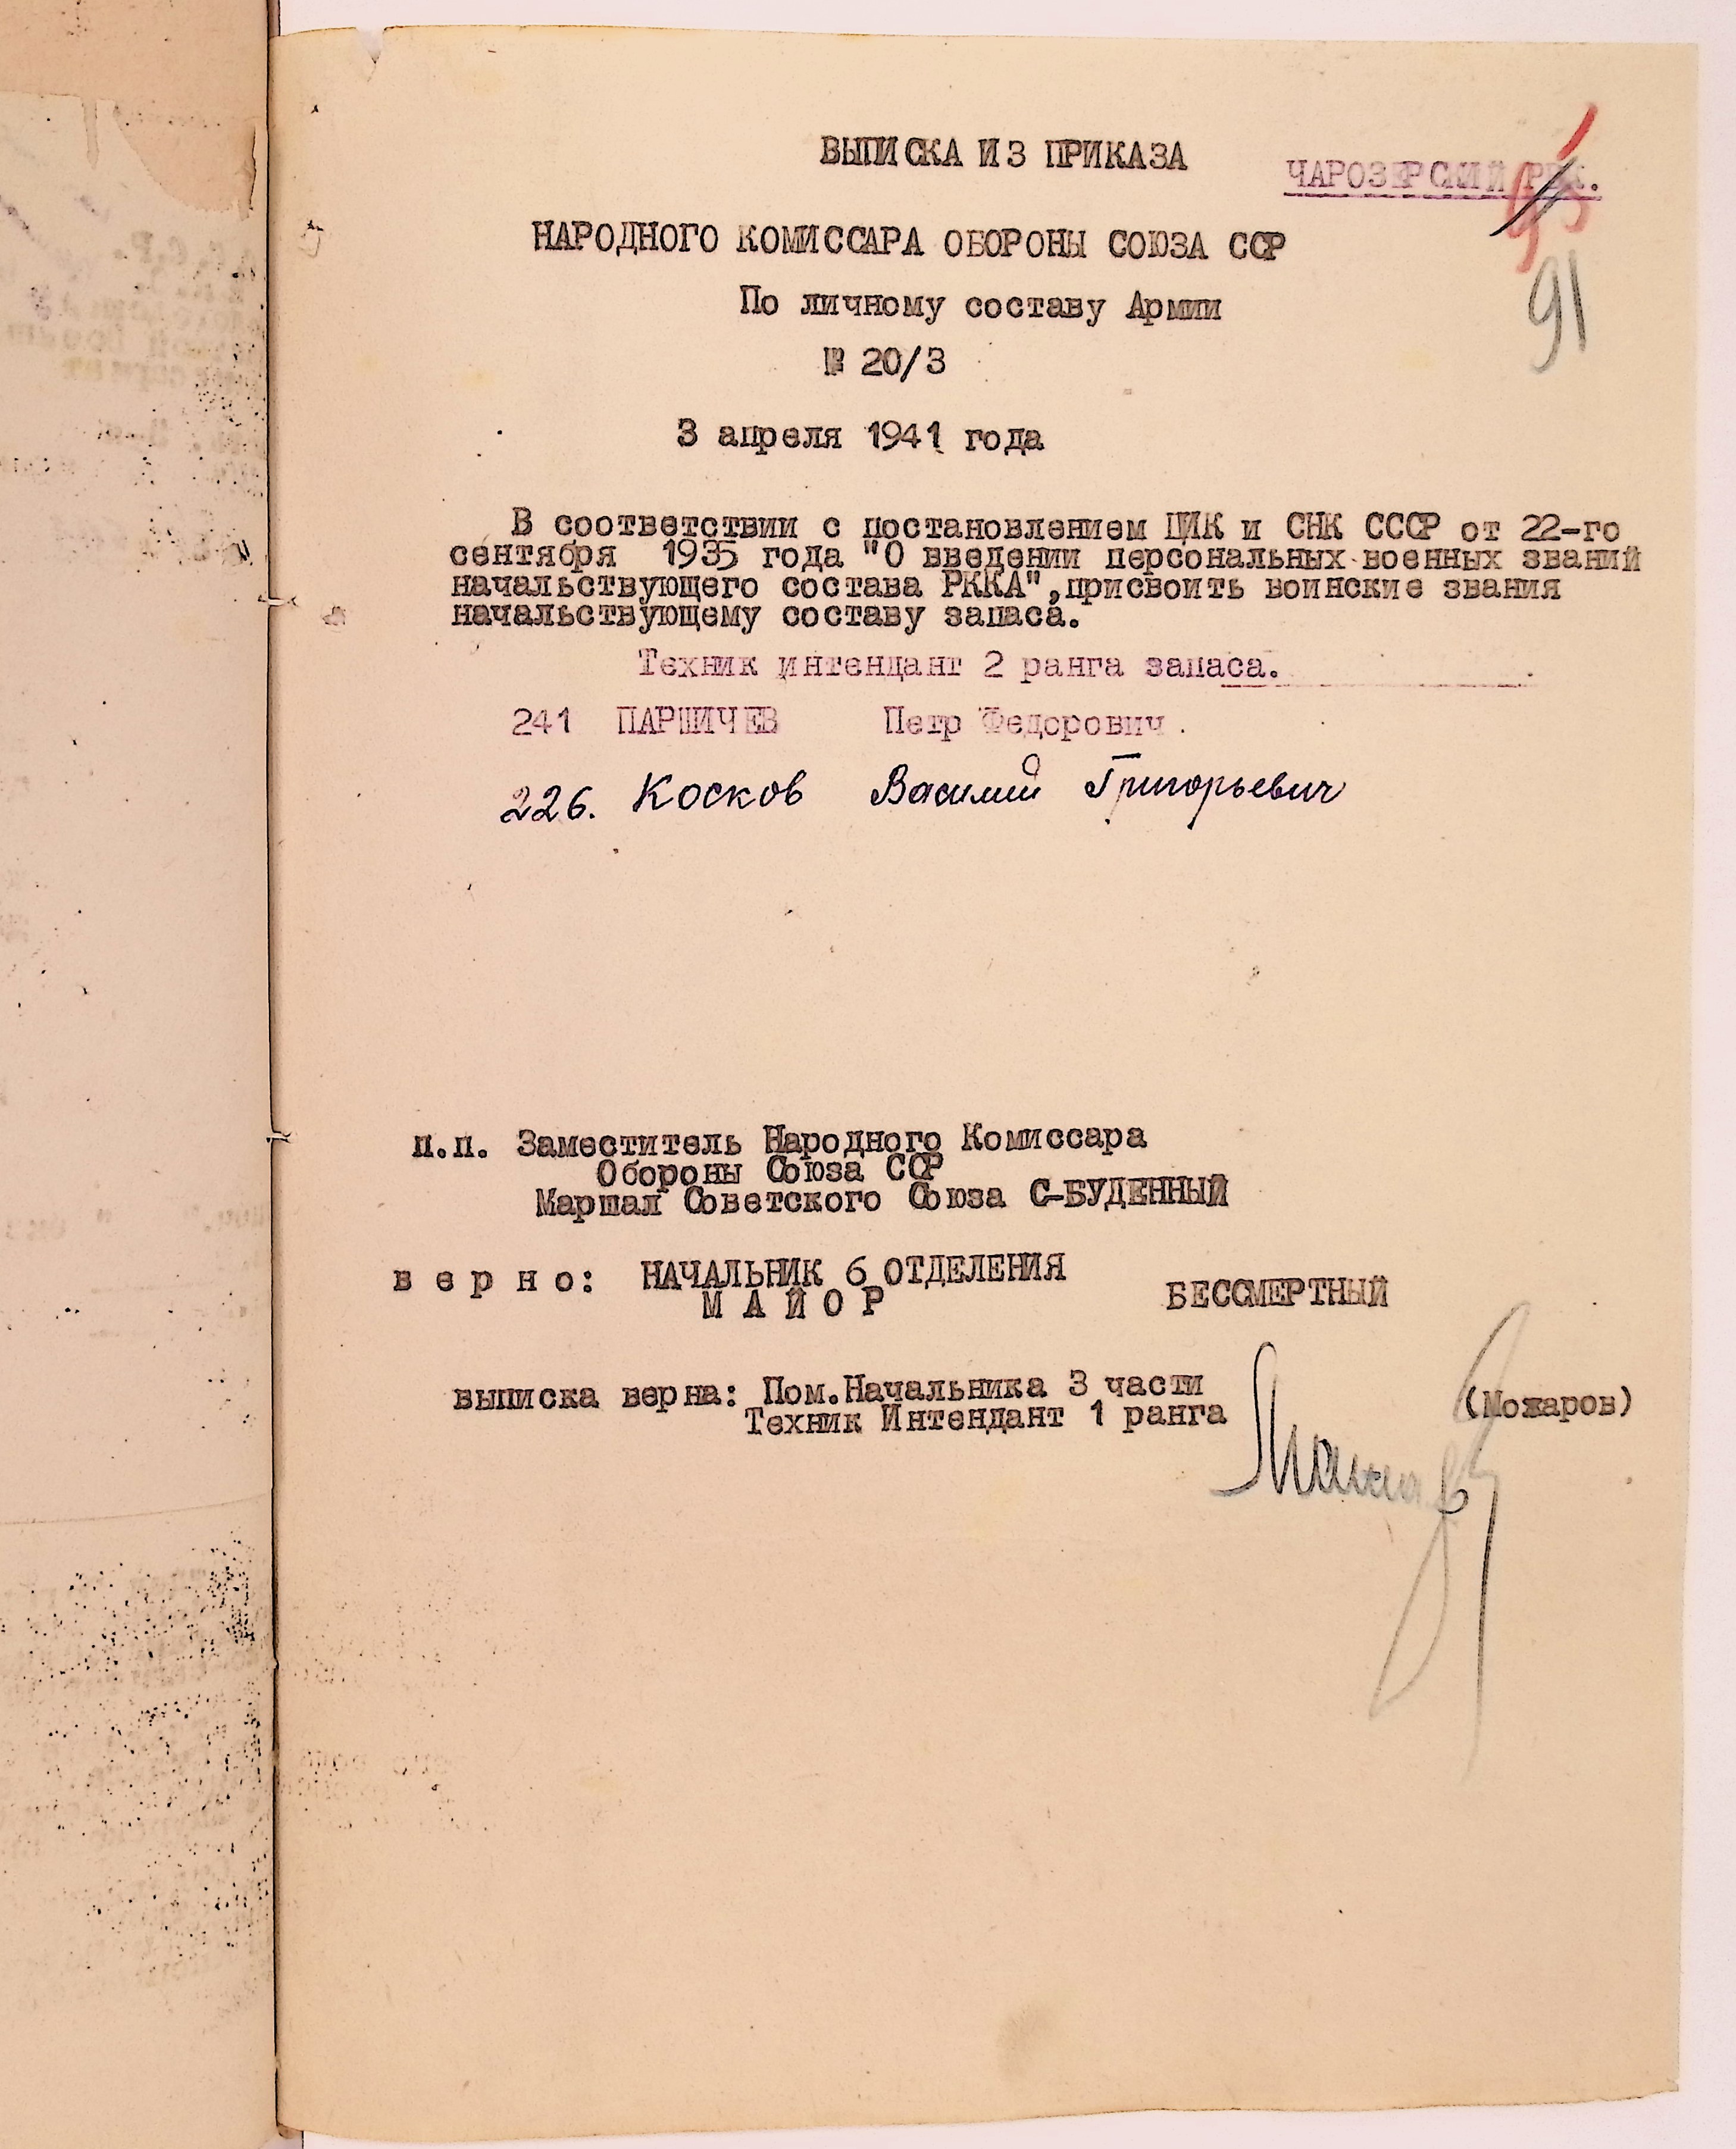 ВЫПИСКА ИЗ ПРИКАЗА
ЧАРОЗЕРСКИЙ РВК.
91
НАРОДНОГО КОМИССАРА ОБОРОНЫ СОЮЗА ССР
По личному составу Армии
№ 20/3
3 апреля 1941 года
В соответствии с постановлением ЦИК и СНК СССР от 22-го
сентября 1935 года "О введении персональных военных званий
начальствующего состава РККА",присвоить воинские звания
начальствующему составу запаса.
Техник интендант 2 ранга запаса.
241 ПАРШИЧЕВ Петр Федорович.
226. Косков Василий Григорьевич
п.п. Заместитель Народного Комиссара
Обороны Союза ССР
Маршал Советского Союза С-БУДЕННЫЙ
в е р н о: НАЧАЛЬНИК 6 ОТДЕЛЕНИЯ
М А Й О Р БЕССМЕРТНЫЙ
выписка верна: Пом.Начальника 3 части
Техник Интендант 1 ранга (Можаров)